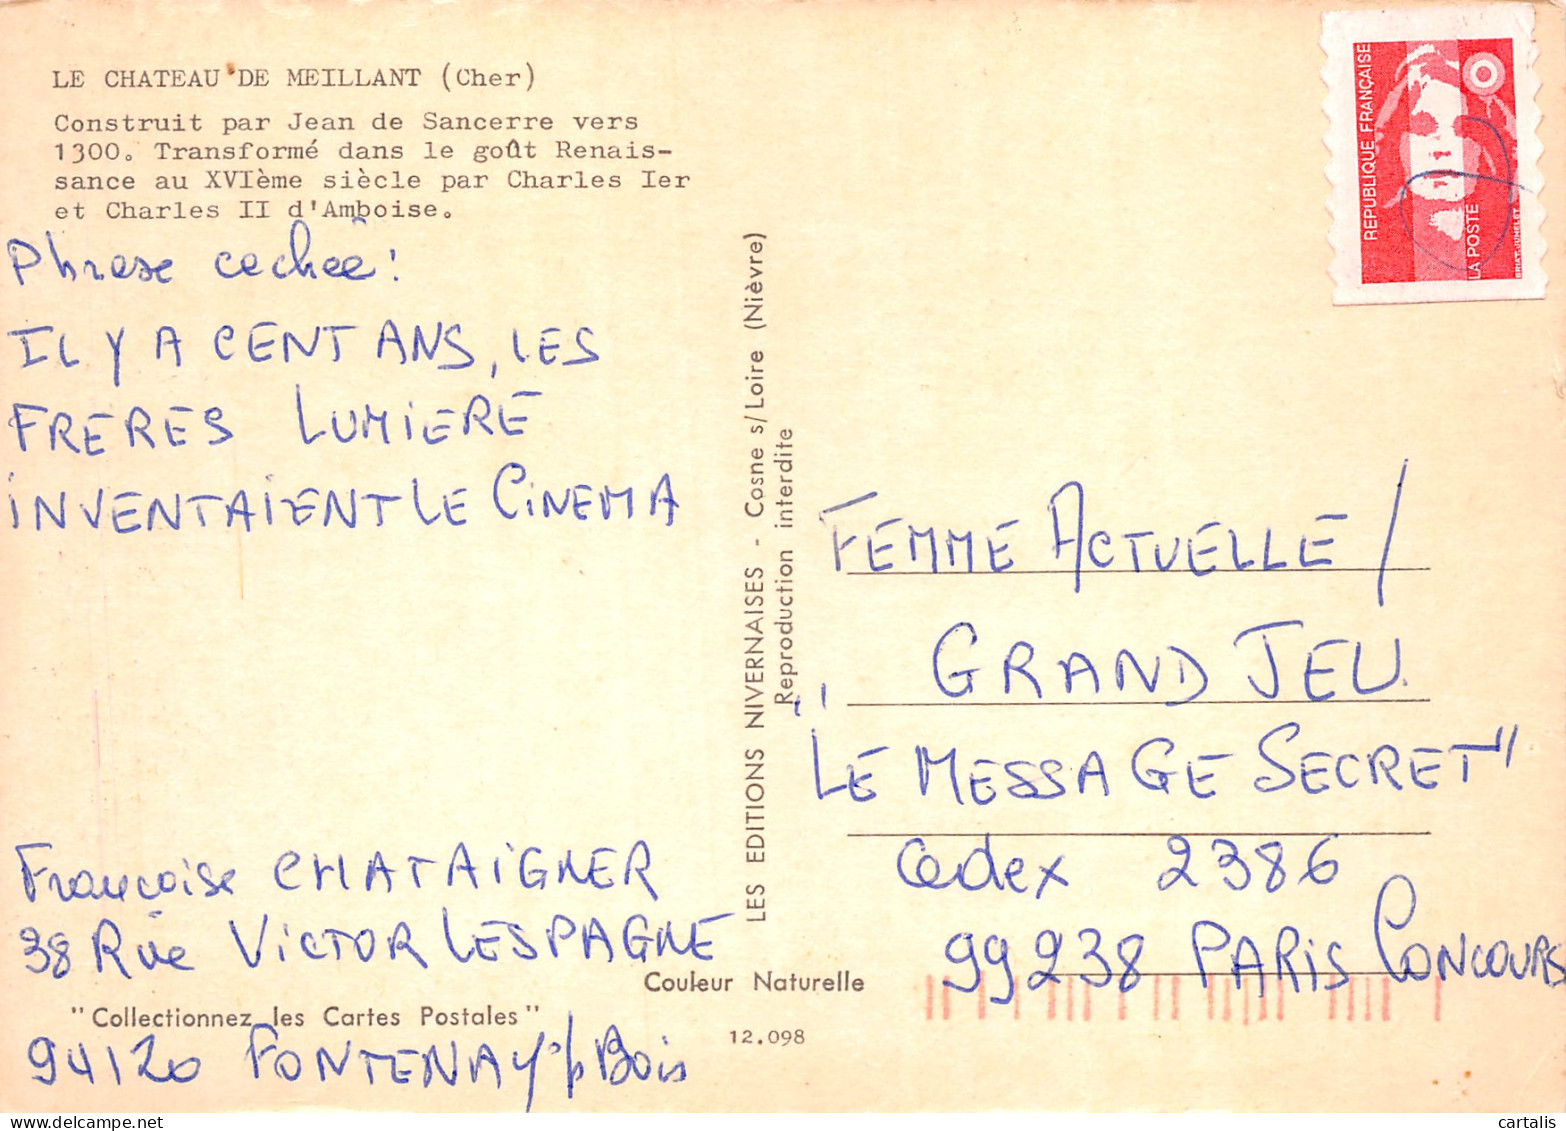 LE CHATEAU DE MEILLANT (Cher)
Construit par Jean de Sancerre vers
1300. Transformé dans le goût Renais-
sance au XVIème siècle par Charles Ier
et Charles II d'Amboise.
Phrase cachée :
IL Y A CENT ANS, LES
FRERES LUMIERE
INVENTAIENT LE CINEMA
Françoise CHATAIGNER
38 Rue VICTOR LESPAGNE
"Collectionnez les Cartes Postales"
94120 FONTENAY s/s Bois
LES EDITIONS NIVERNAISES - Cosne s/Loire (Nièvre)
Reproduction interdite
Couleur Naturelle
12.098
REPUBLIQUE FRANÇAISE
LA POSTE
BRIAT-JUMELET
FEMME ACTUELLE /
GRAND JEU
"LE MESSAGE SECRET"
Cedex 2386
99238 PARIS CONCOURS
cartalis
www.delcampe.net